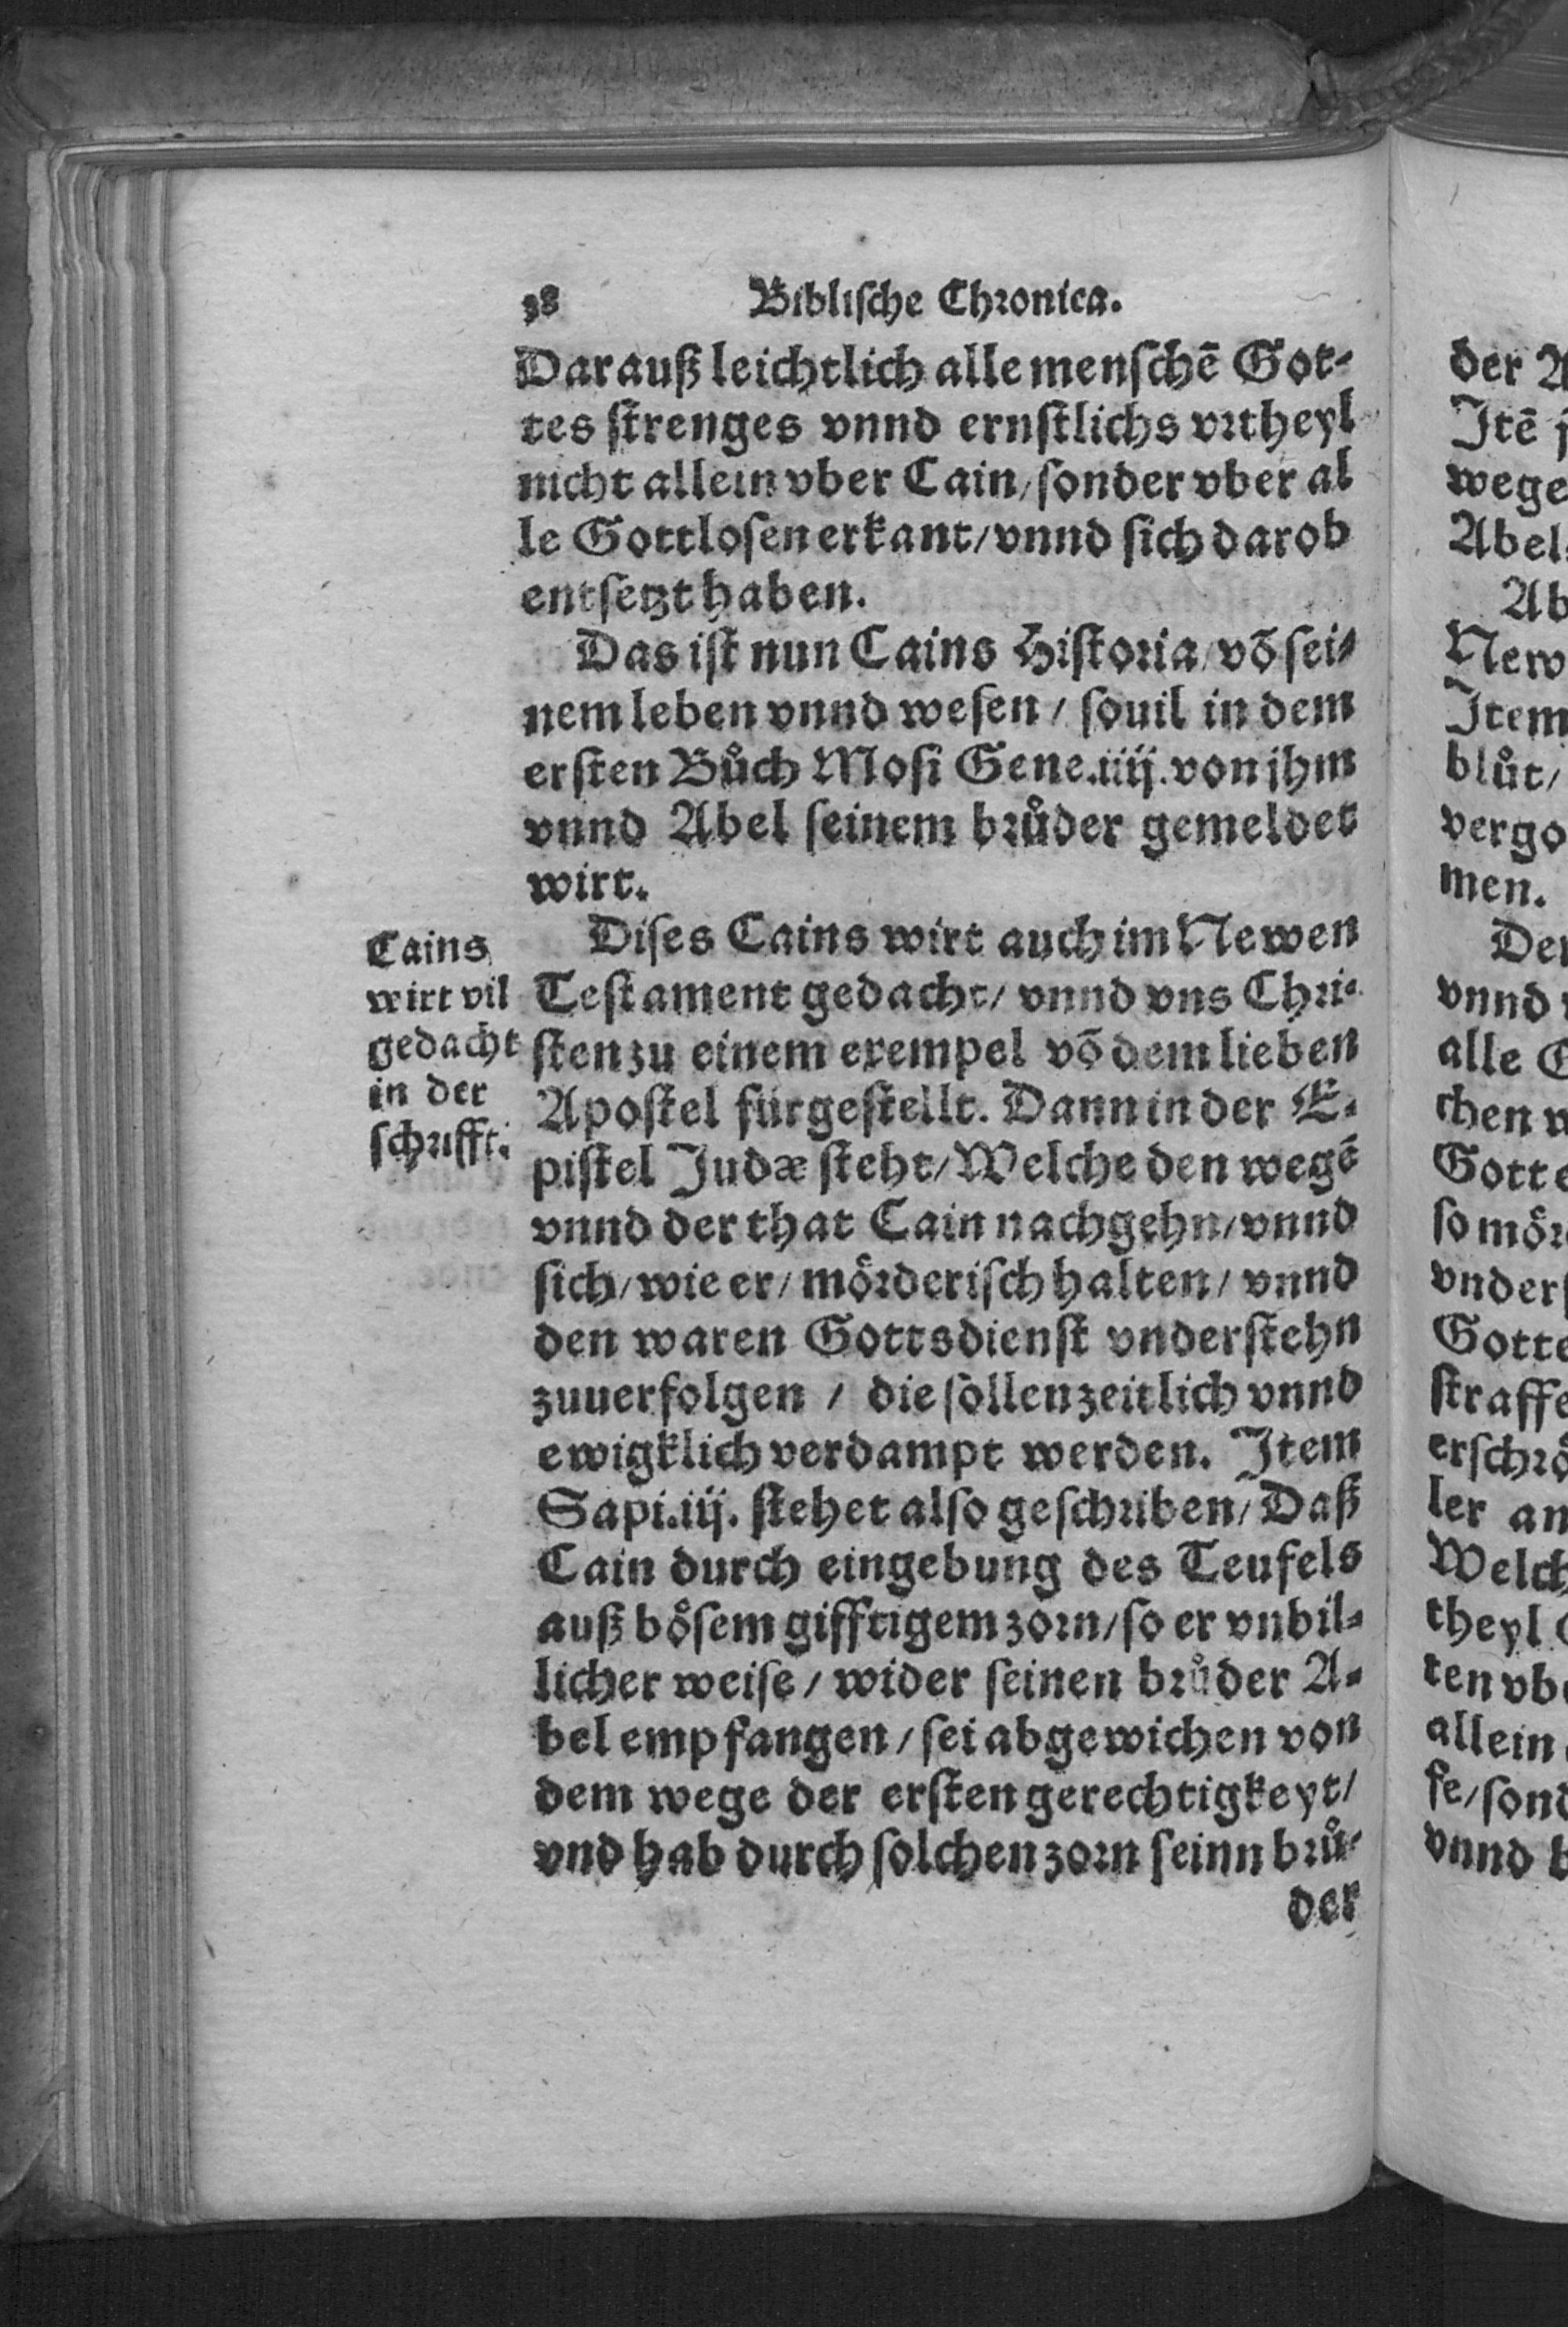 38 Biblische Chronica.
Darauß leichtlich alle menschē Got-
tes strenges vnnd ernstlichs vrtheyl
nicht allein vber Cain/sonder vber al
le Gottlosen erkant/vnnd sich darob
entsetzt haben.
Das ist nun Cains Historia/võ sei-
nem leben vnnd wesen / souil in dem
ersten Bůch Mosi Gene.iiij.von jhm
vnnd Abel seinem brůder gemeldet
wirt.
Cains
wirt vil
gedacht
in der
schrifft.
Dises Cains wirt auch im Newen
Testament gedacht/ vnnd vns Chri-
sten zu einem exempel võ dem lieben
Apostel fürgestellt. Dann in der E-
pistel Judæ steht/Welche den wegē
vnnd der that Cain nachgehn/vnnd
sich/wie er/mörderisch halten/ vnnd
den waren Gottsdienst vnderstehn
zuuerfolgen / die sollen zeitlich vnnd
ewigklich verdampt werden. Item
Sapi.iij. stehet also geschriben/Daß
Cain durch eingebung des Teufels
auß bösem gifftigem zorn/so er vnbil-
licher weise/ wider seinen brůder A-
bel empfangen/sei abgewichen von
dem wege der ersten gerechtigkeyt/
vnd hab durch solchen zorn seinn brů-
der
der A
Itē j
wege
Abel
Ab
New
Item
blůt/
vergo
men.
Der
vnnd
alle C
chen w
Gotte
so mör
vnders
Gotte
straffe
erschrö
ler an
Welch
theyl
ten vbe
allein
fe/sond
vnnd b